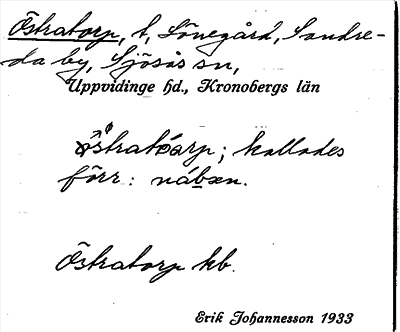 Östratorp, t, Lönegård, Sandre-
da by, Sjösås sn,
Uppvidinge hd., Kronobergs län
östratårp; kallades
förr: nábæn.
Östratorp kb.
Erik Johannesson 1933